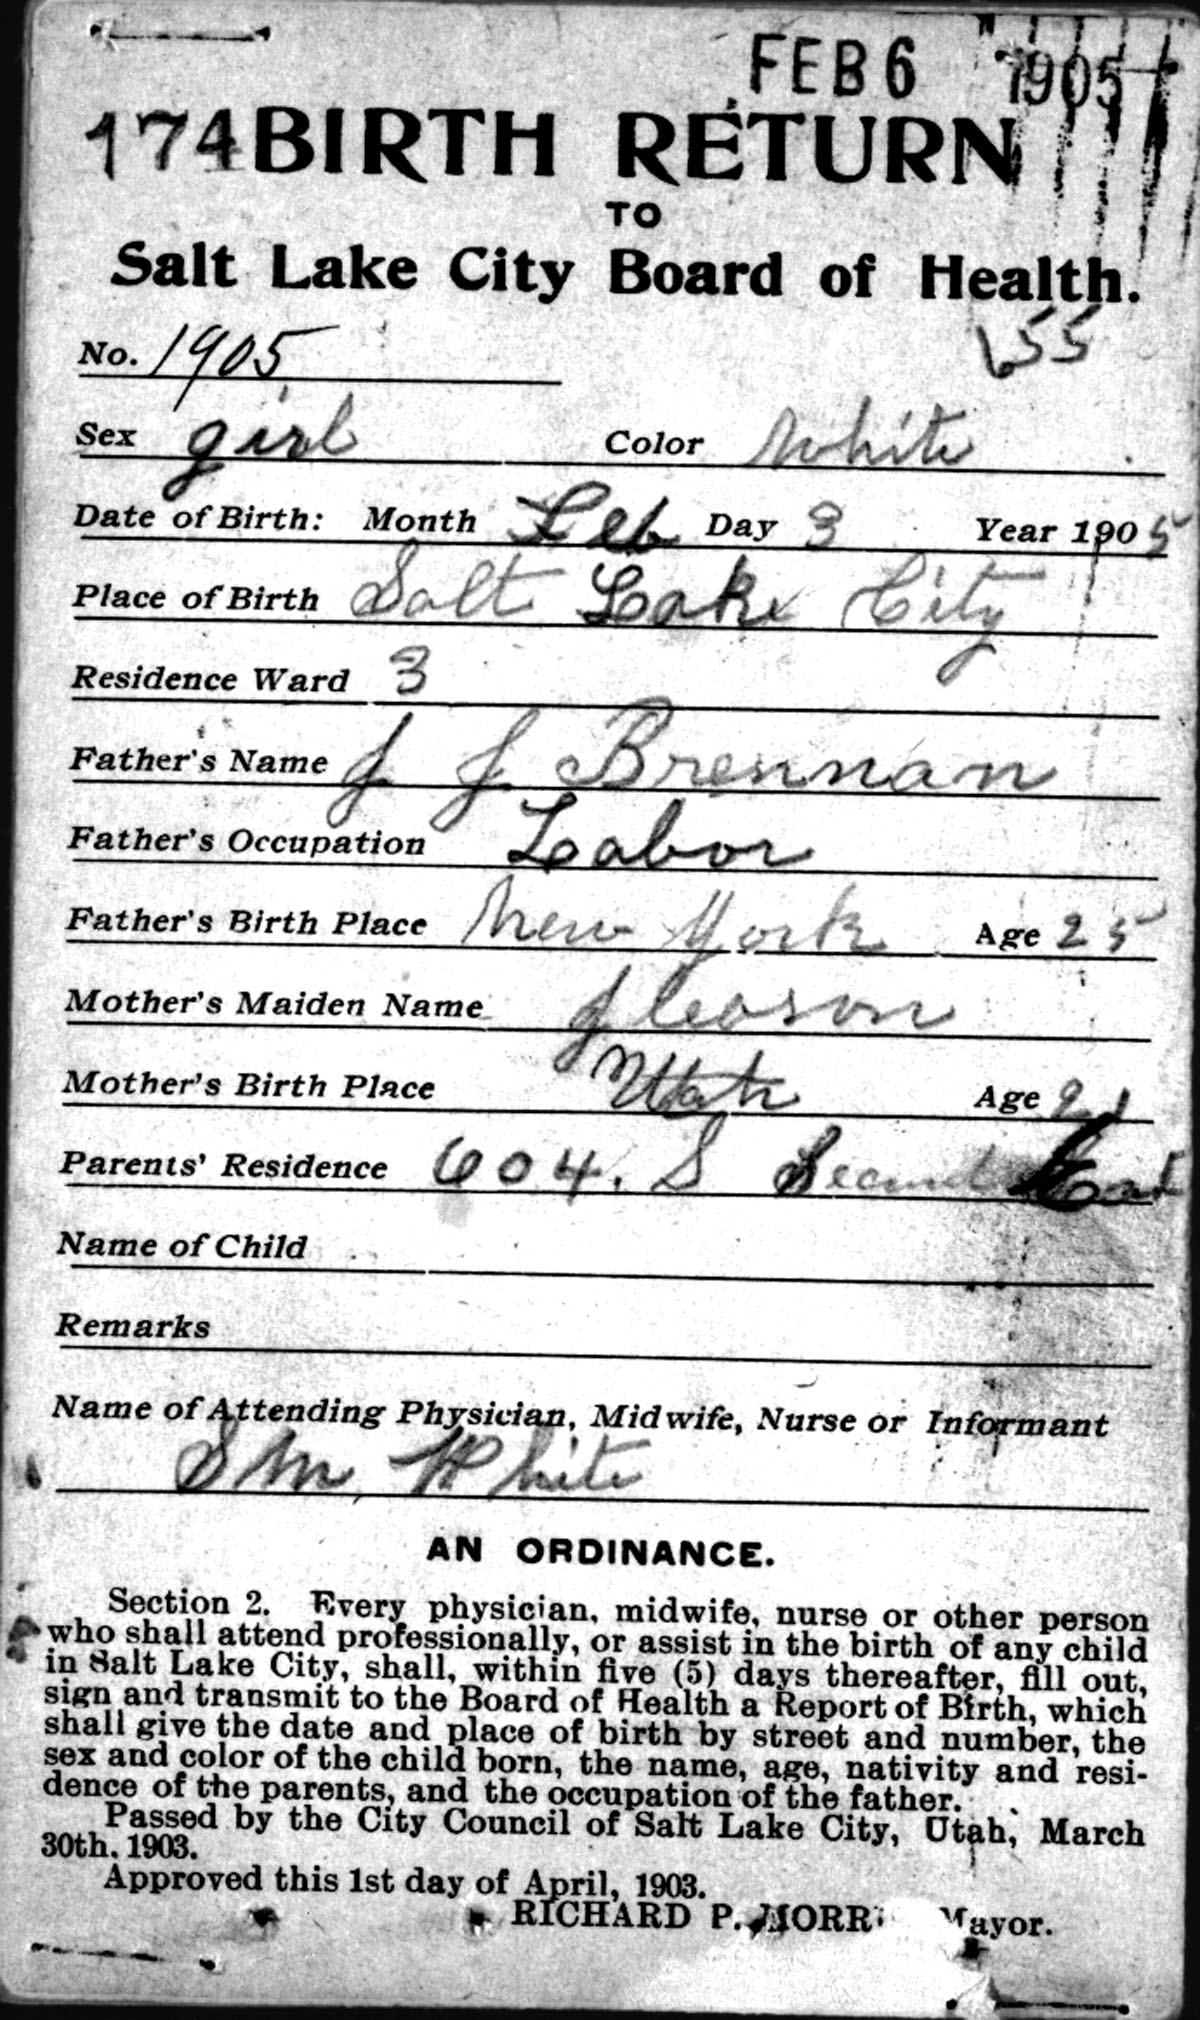 FEB 6 1905
174 BIRTH RETURN
TO
Salt Lake City Board of Health.
155
No. 1905
Sex girl Color White
Date of Birth: Month Feb Day 3 Year 1905
Place of Birth Salt Lake City
Residence Ward 3
Father's Name J J Brennan
Father's Occupation Labor
Father's Birth Place New York Age 25
Mother's Maiden Name Gleason
Mother's Birth Place Utah Age 21
Parents' Residence 604. S Second East
Name of Child
Remarks
Name of Attending Physician, Midwife, Nurse or Informant
S M. White
AN ORDINANCE.
Section 2. Every physician, midwife, nurse or other person
who shall attend professionally, or assist in the birth of any child
in Salt Lake City, shall, within five (5) days thereafter, fill out,
sign and transmit to the Board of Health a Report of Birth, which
shall give the date and place of birth by street and number, the
sex and color of the child born, the name, age, nativity and resi-
dence of the parents, and the occupation of the father.
Passed by the City Council of Salt Lake City, Utah, March
30th, 1903.
Approved this 1st day of April, 1903.
RICHARD P. MORR Mayor.